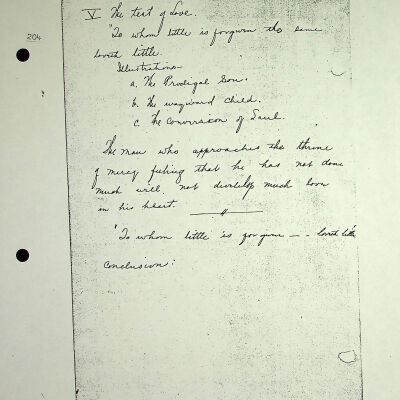 204
V The test of Love.
"To whom little is forgiven the same
loveth little.
Illustrations
a. The Prodigal Son.
b. The wayward child.
c. The Conversion of Saul.
The man who approaches the throne
of mercy feeling that he has not done
much will not develop much love
in his heart.
"To whom little is forgiven — - loveth little
Conclusion: